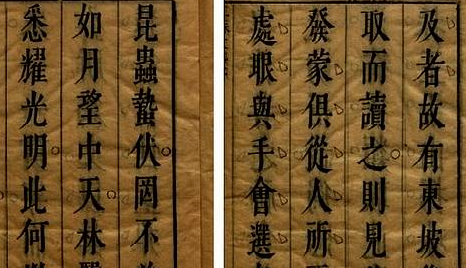 及者故有東坡
取而讀之則見
發蒙俱從人所
處眼與手會選
昆蟲蟄伏罔不
如月望中天林
悉耀光明此何